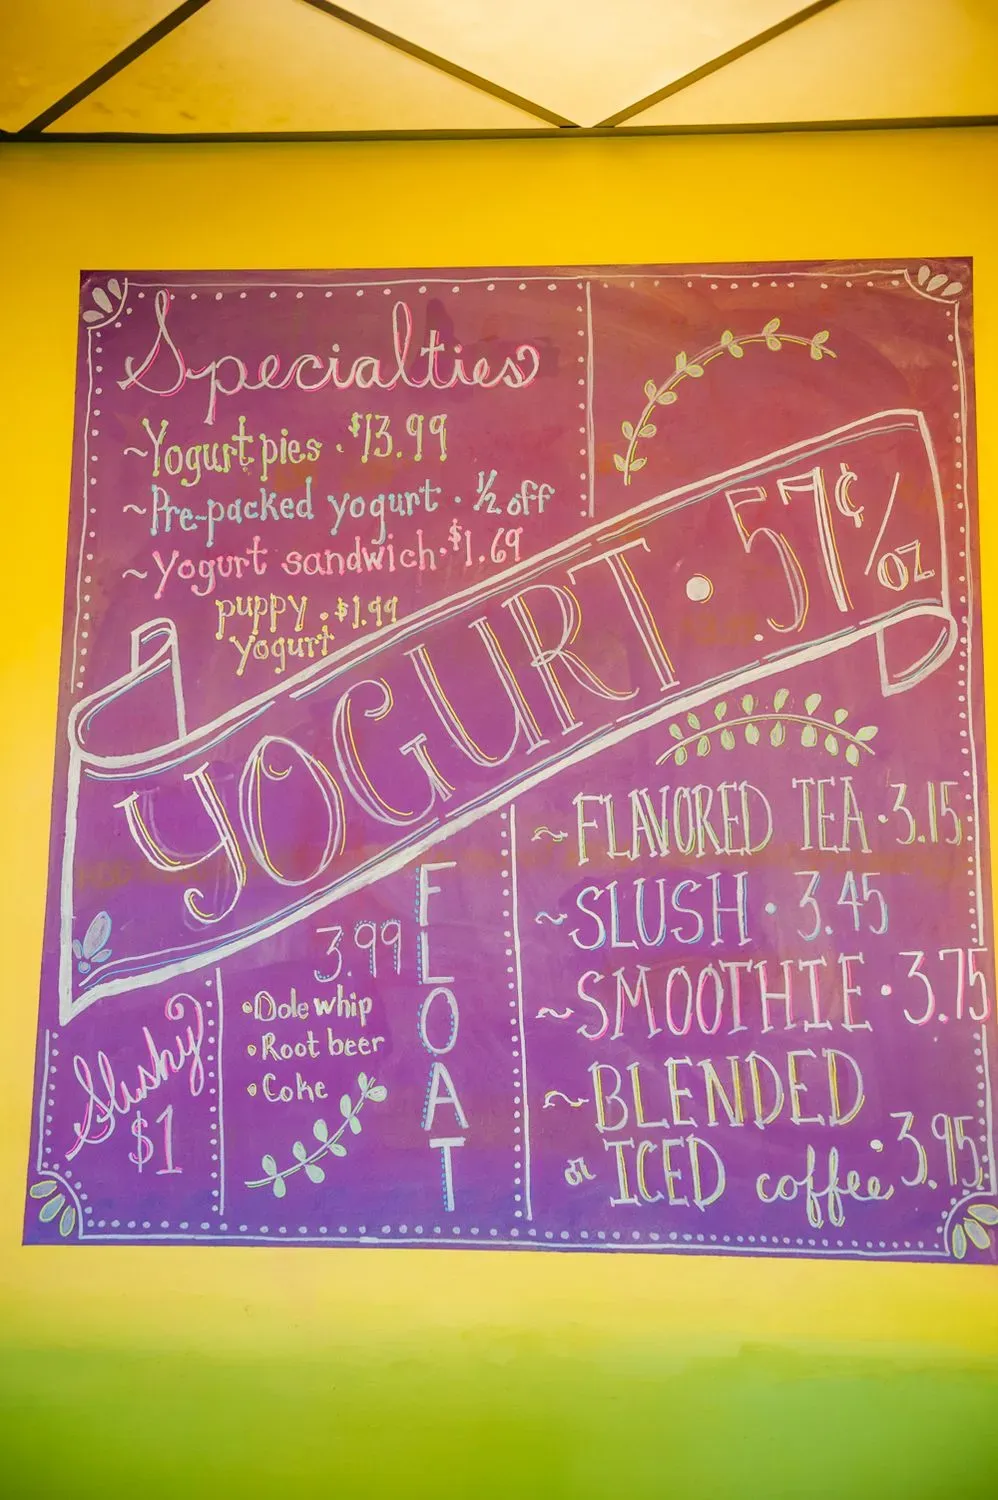 Specialties
~Yogurt pies · $13.99
~Pre-packed yogurt · ½ off
~Yogurt sandwich · $1.69
puppy · $1.99
yogurt
YOGURT · 57¢/oz
~FLAVORED TEA · 3.15
~SLUSH · 3.45
~SMOOTHIE · 3.75
~BLENDED
or ICED coffee · 3.95
FLOAT
3.99
• Dole whip
• Root beer
• Coke
Slushy
$1